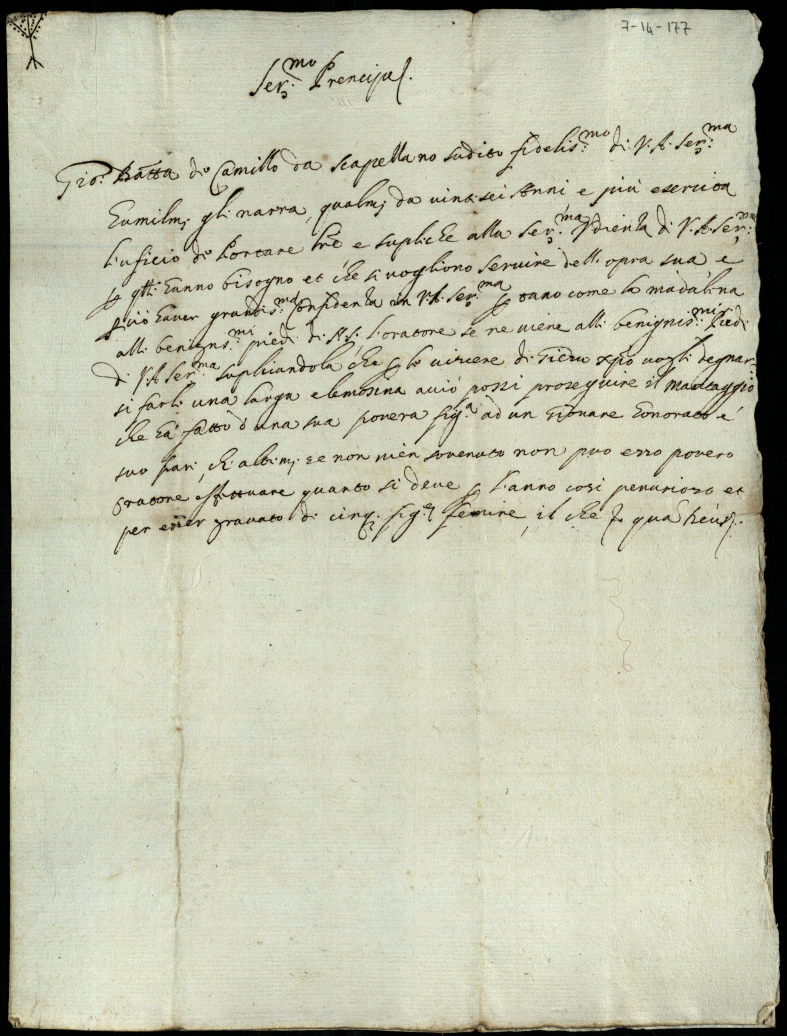 7-14-177
Ser.mo Prencipe.
Gio. Batta de Camillo da scapezzano sudito fidelis.mo di V. A. Ser.ma
humilm. gli narra, qualm. da vintisei Anni e più esercita
l'uficio de Portare lre e supliche alla Ser.ma Udienza di V. A. Ser.ma
p qlli hanno bisogno et che si vogliono servire dell'opra sua e
p ciò haver grandis.ma Confidenza in V. A. Ser.ma p tanto come la madalina
alli benignis.mi piedi di N. S. l'oratore se ne viene alli benignis.mi Piedi
di V. A Ser.ma supliciandola che p le viscere di Giesu xpo vogli degnar
si farli una larga elemosina acciò possi proseguire il Maritaggio
che ha fatto d'una sua povera fig.a ad un Giovane honorato e
suo pari, ch'altrim. se non vien sovenuto non puo esso povero
Oratore effettuare quanto si deve p l'anno cosi penurioso et
per esser gravato di cinq. fig.e femine, il che